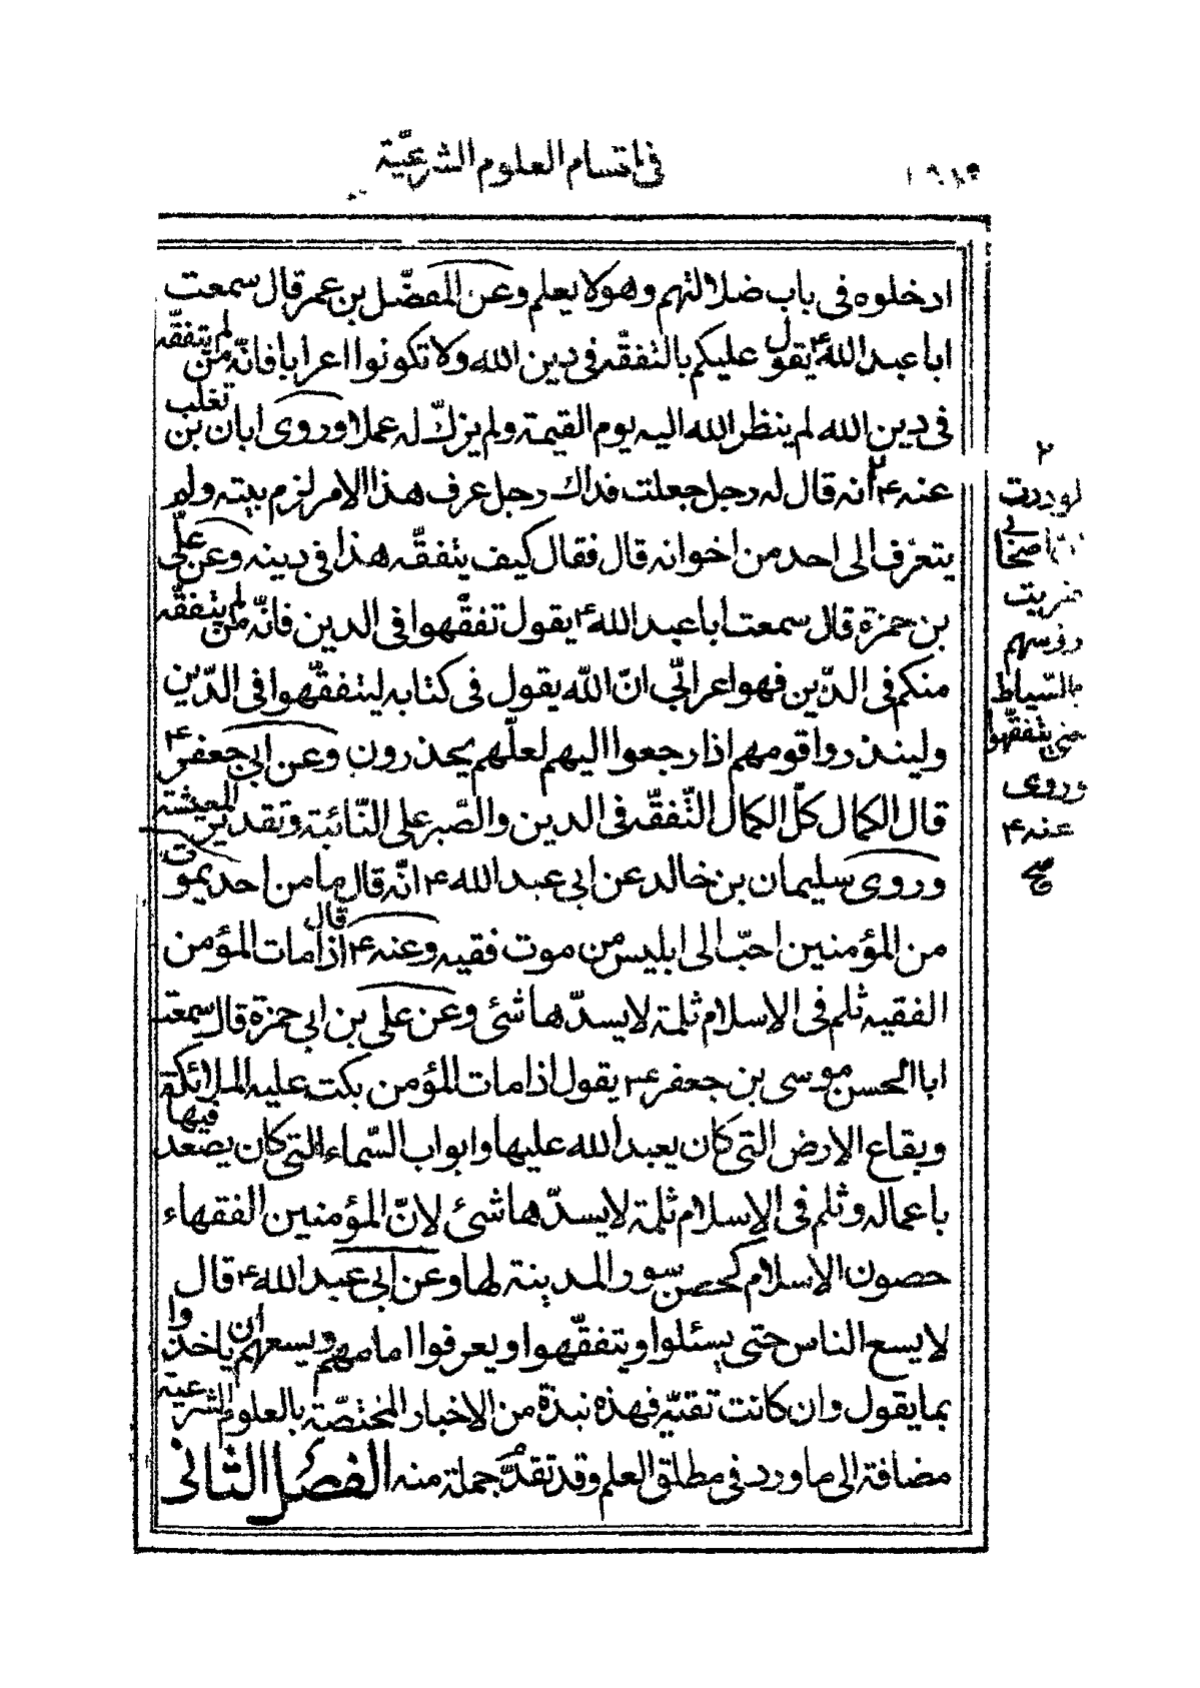 فى اقسام العلوم الشرعيّة
ادخلوه فى باب ضلالتهم وهو لا يعلم وعن المفضّل بن عمر قال سمعت
ابا عبد الله ع يقول عليكم بالتفقّه فى دين الله ولا تكونوا اعرابا فانّه من لم يتفقّه
فى دين الله لم ينظر الله اليه يوم القيمة ولم يزكّ له عملا وروى ابان بن تغلب
عنه ع ٢ انه قال له رجل جعلت فداك رجل عرف هذا الامر لزم بيته ولم
يتعرّف الى احد من اخوانه قال فقال كيف يتفقّه هذا فى دينه وعن علىّ
بن حمزة قال سمعت ابا عبد الله ع يقول تفقّهوا فى الدين فانّه من لم يتفقّه
منكم فى الدّين فهو اعرابىّ انّ الله يقول فى كتابه ليتفقّهوا فى الدّين
ولينذروا قومهم اذا رجعوا اليهم لعلّهم يحذرون وعن ابى جعفر ع
قال الكمال كلّ الكمال التّفقّه فى الدين والصّبر على النّائبة وتقدير المعيشة
وروى سليمان بن خالد عن ابى عبد الله ع انّه قال ما من احد يموت
من المؤمنين احبّ الى ابليس من موت فقيه وعنه ع قال اذا مات المؤمن
الفقيه ثلم فى الاسلام ثلمة لا يسدّها شئ وعن على بن ابى حمزة قال سمعت
ابا الحسن موسى بن جعفر ع يقول اذا مات المؤمن بكت عليه الملائكة
وبقاع الارض التى كان يعبد الله عليها وابواب السّماء التى كان يصعد فيها
باعماله وثلم فى الاسلام ثلمة لا يسدّها شئ لانّ المؤمنين الفقهاء
حصون الاسلام كحصن سور المدينة لها وعن ابى عبد الله ع قال
لا يسع الناس حتى يسئلوا ويتفقّهوا ويعرفوا امامهم ويسعهم ان ياخذوا
بما يقول وان كانت تقيّة فهذه نبذة من الاخبار المختصّة بالعلوم الشرعيّة
مضافة الى ما ورد فى مطلق العلم وقد تقدّم جملة منه الفصل الثانى
٢
لوددت
اصحابى
ضربت
رؤسهم
بالسّياط
حتى يتفقّهوا
وروى
عنه ع
صح